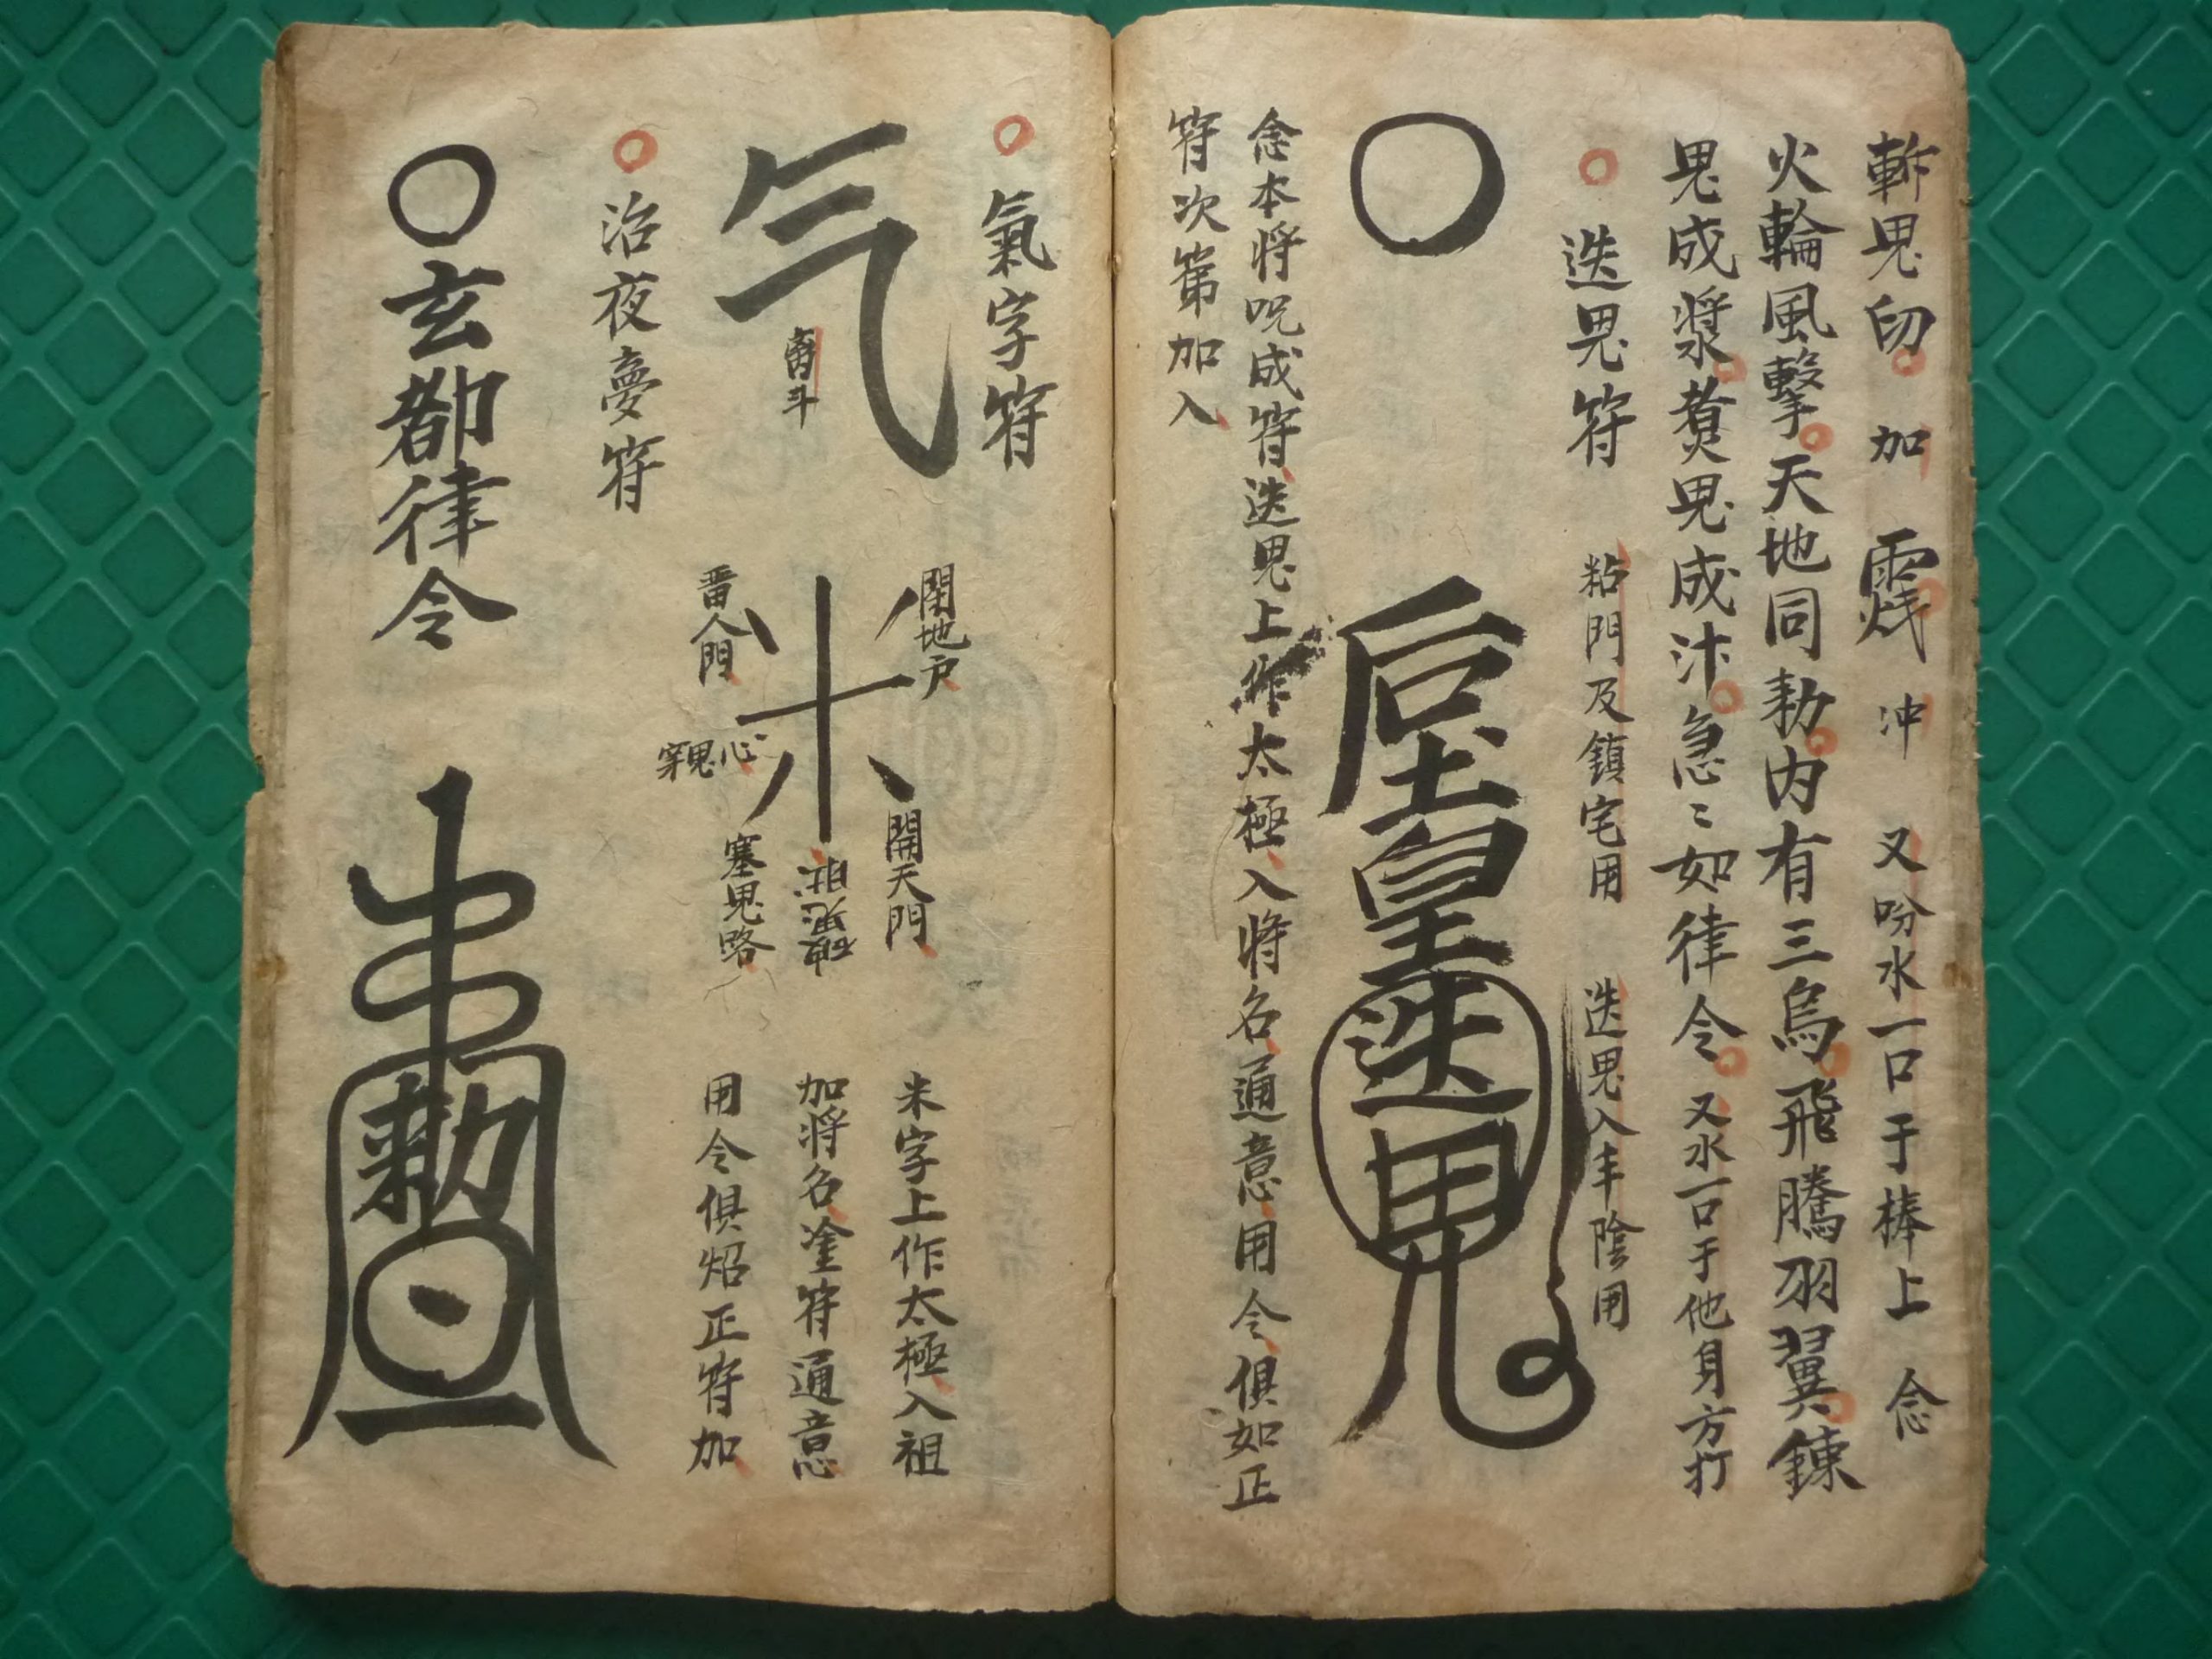 斬鬼印 加 冲 又吩水一口于棒上 念
火輪風擊天地同勑内有三烏飛騰羽翼鍊
鬼成漿煑鬼成汴急〻如律令 又水一口于他身方打
迭鬼符 粘門及鎮宅用 迭鬼入丰陰用
后土皇迭鬼
念本將呪成符迭鬼上作太極入將名通意用令俱如正
符次第加入
氣字符
气
斗
開地戸
人門
穿鬼心
塞鬼路
開天門
米字上作太極入祖
加將名塗符通意
用令俱炤正符加
治夜夢符
玄都律令
勑